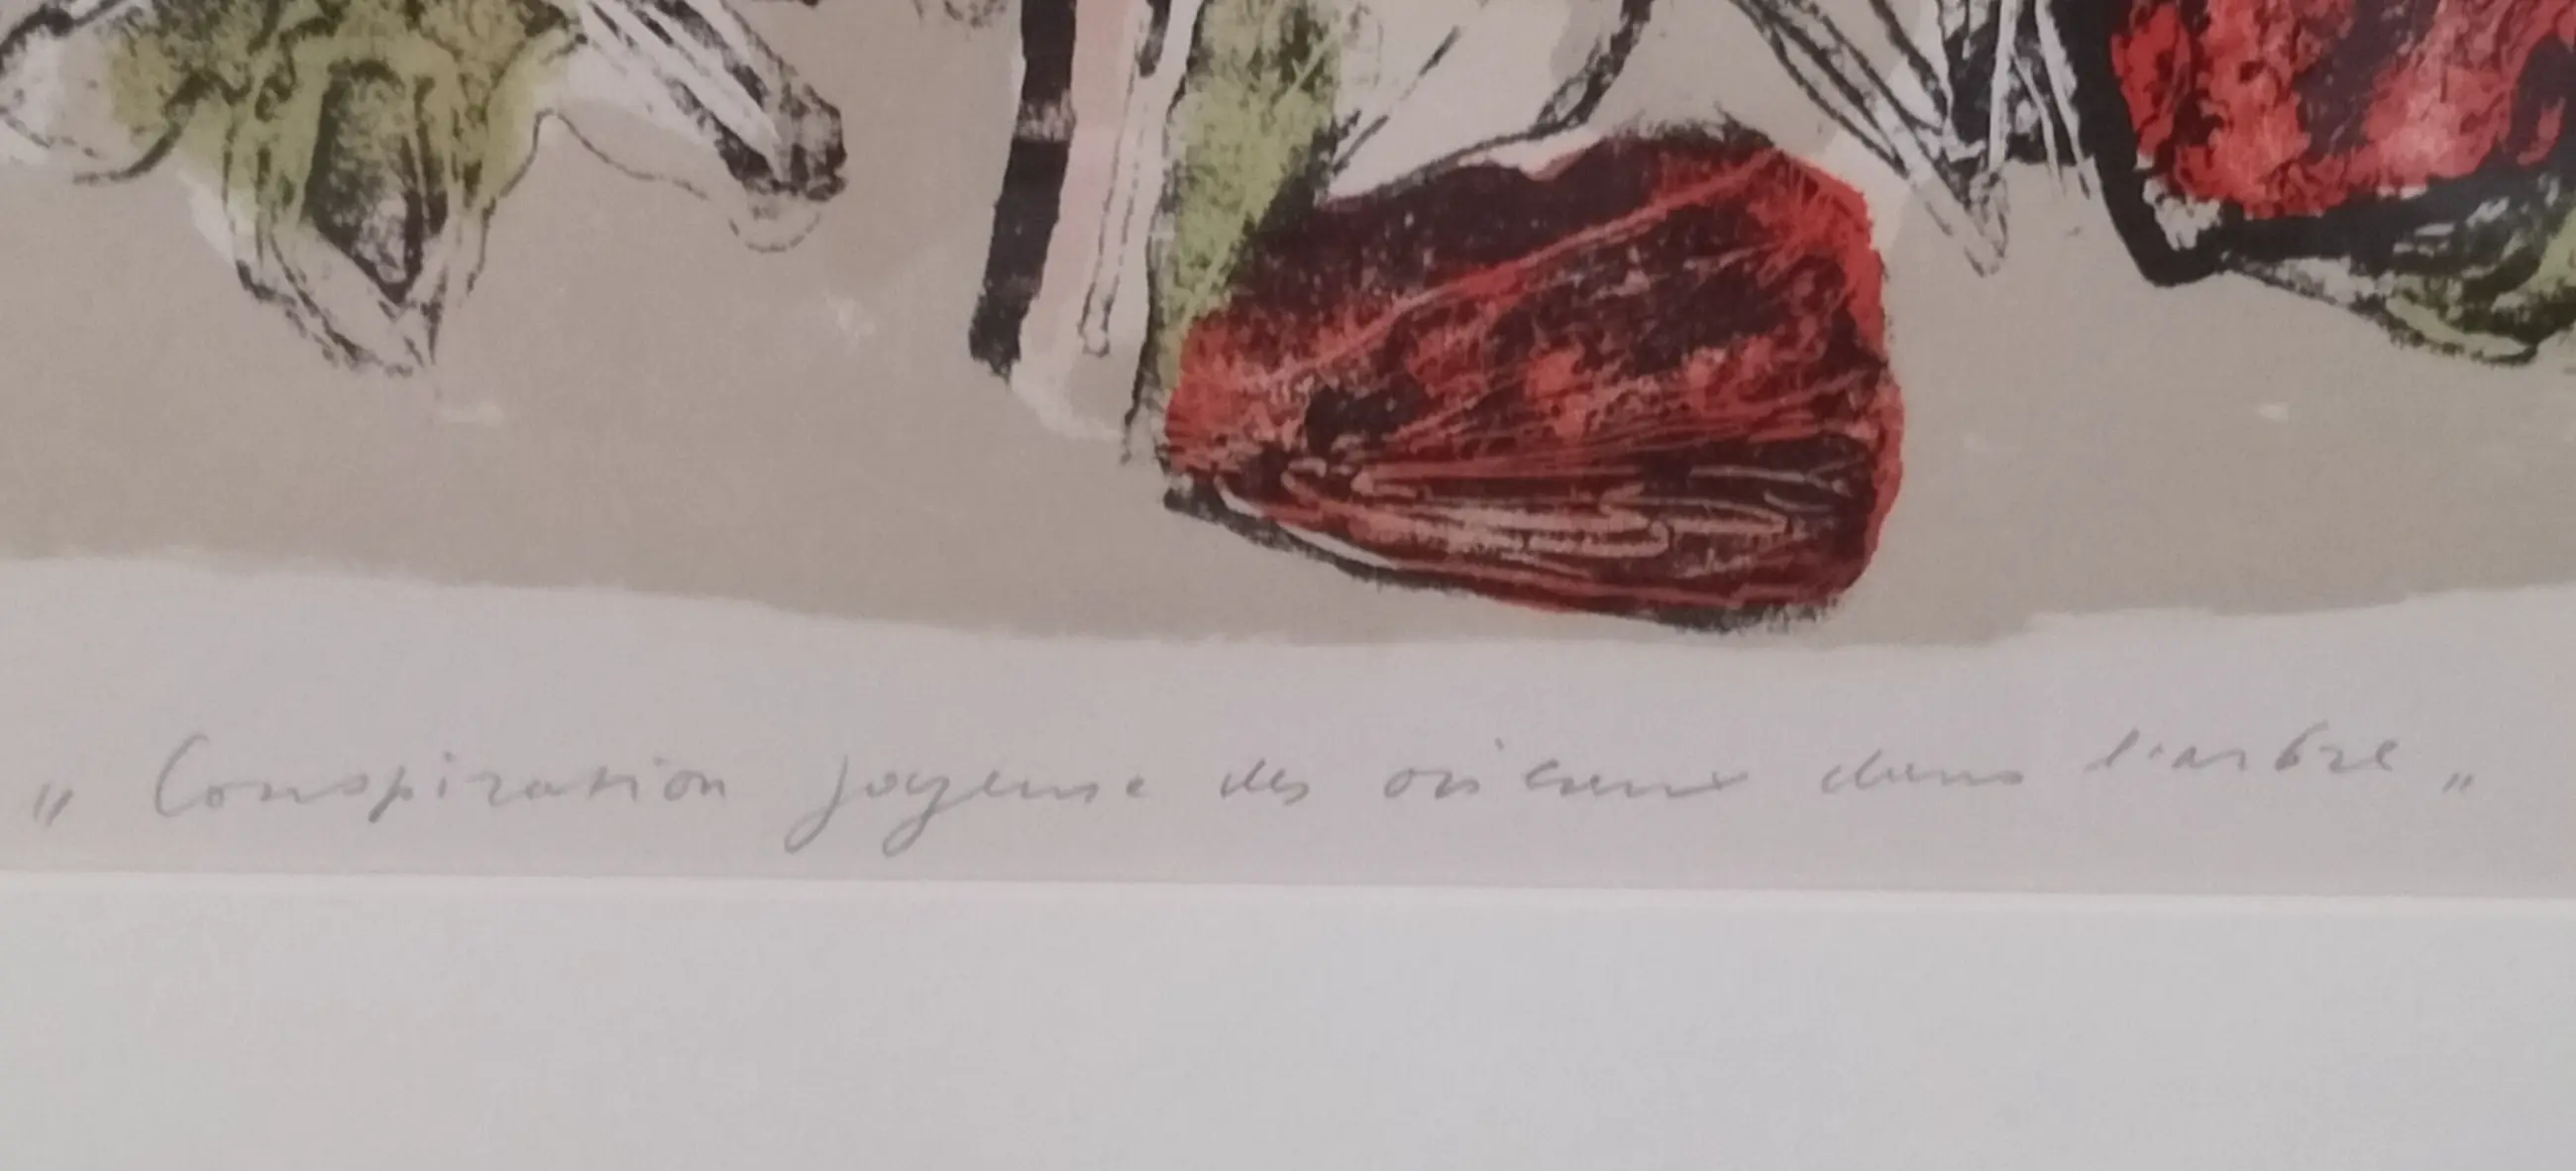 " Conspiration joyeuse des oiseaux dans l'arbre "